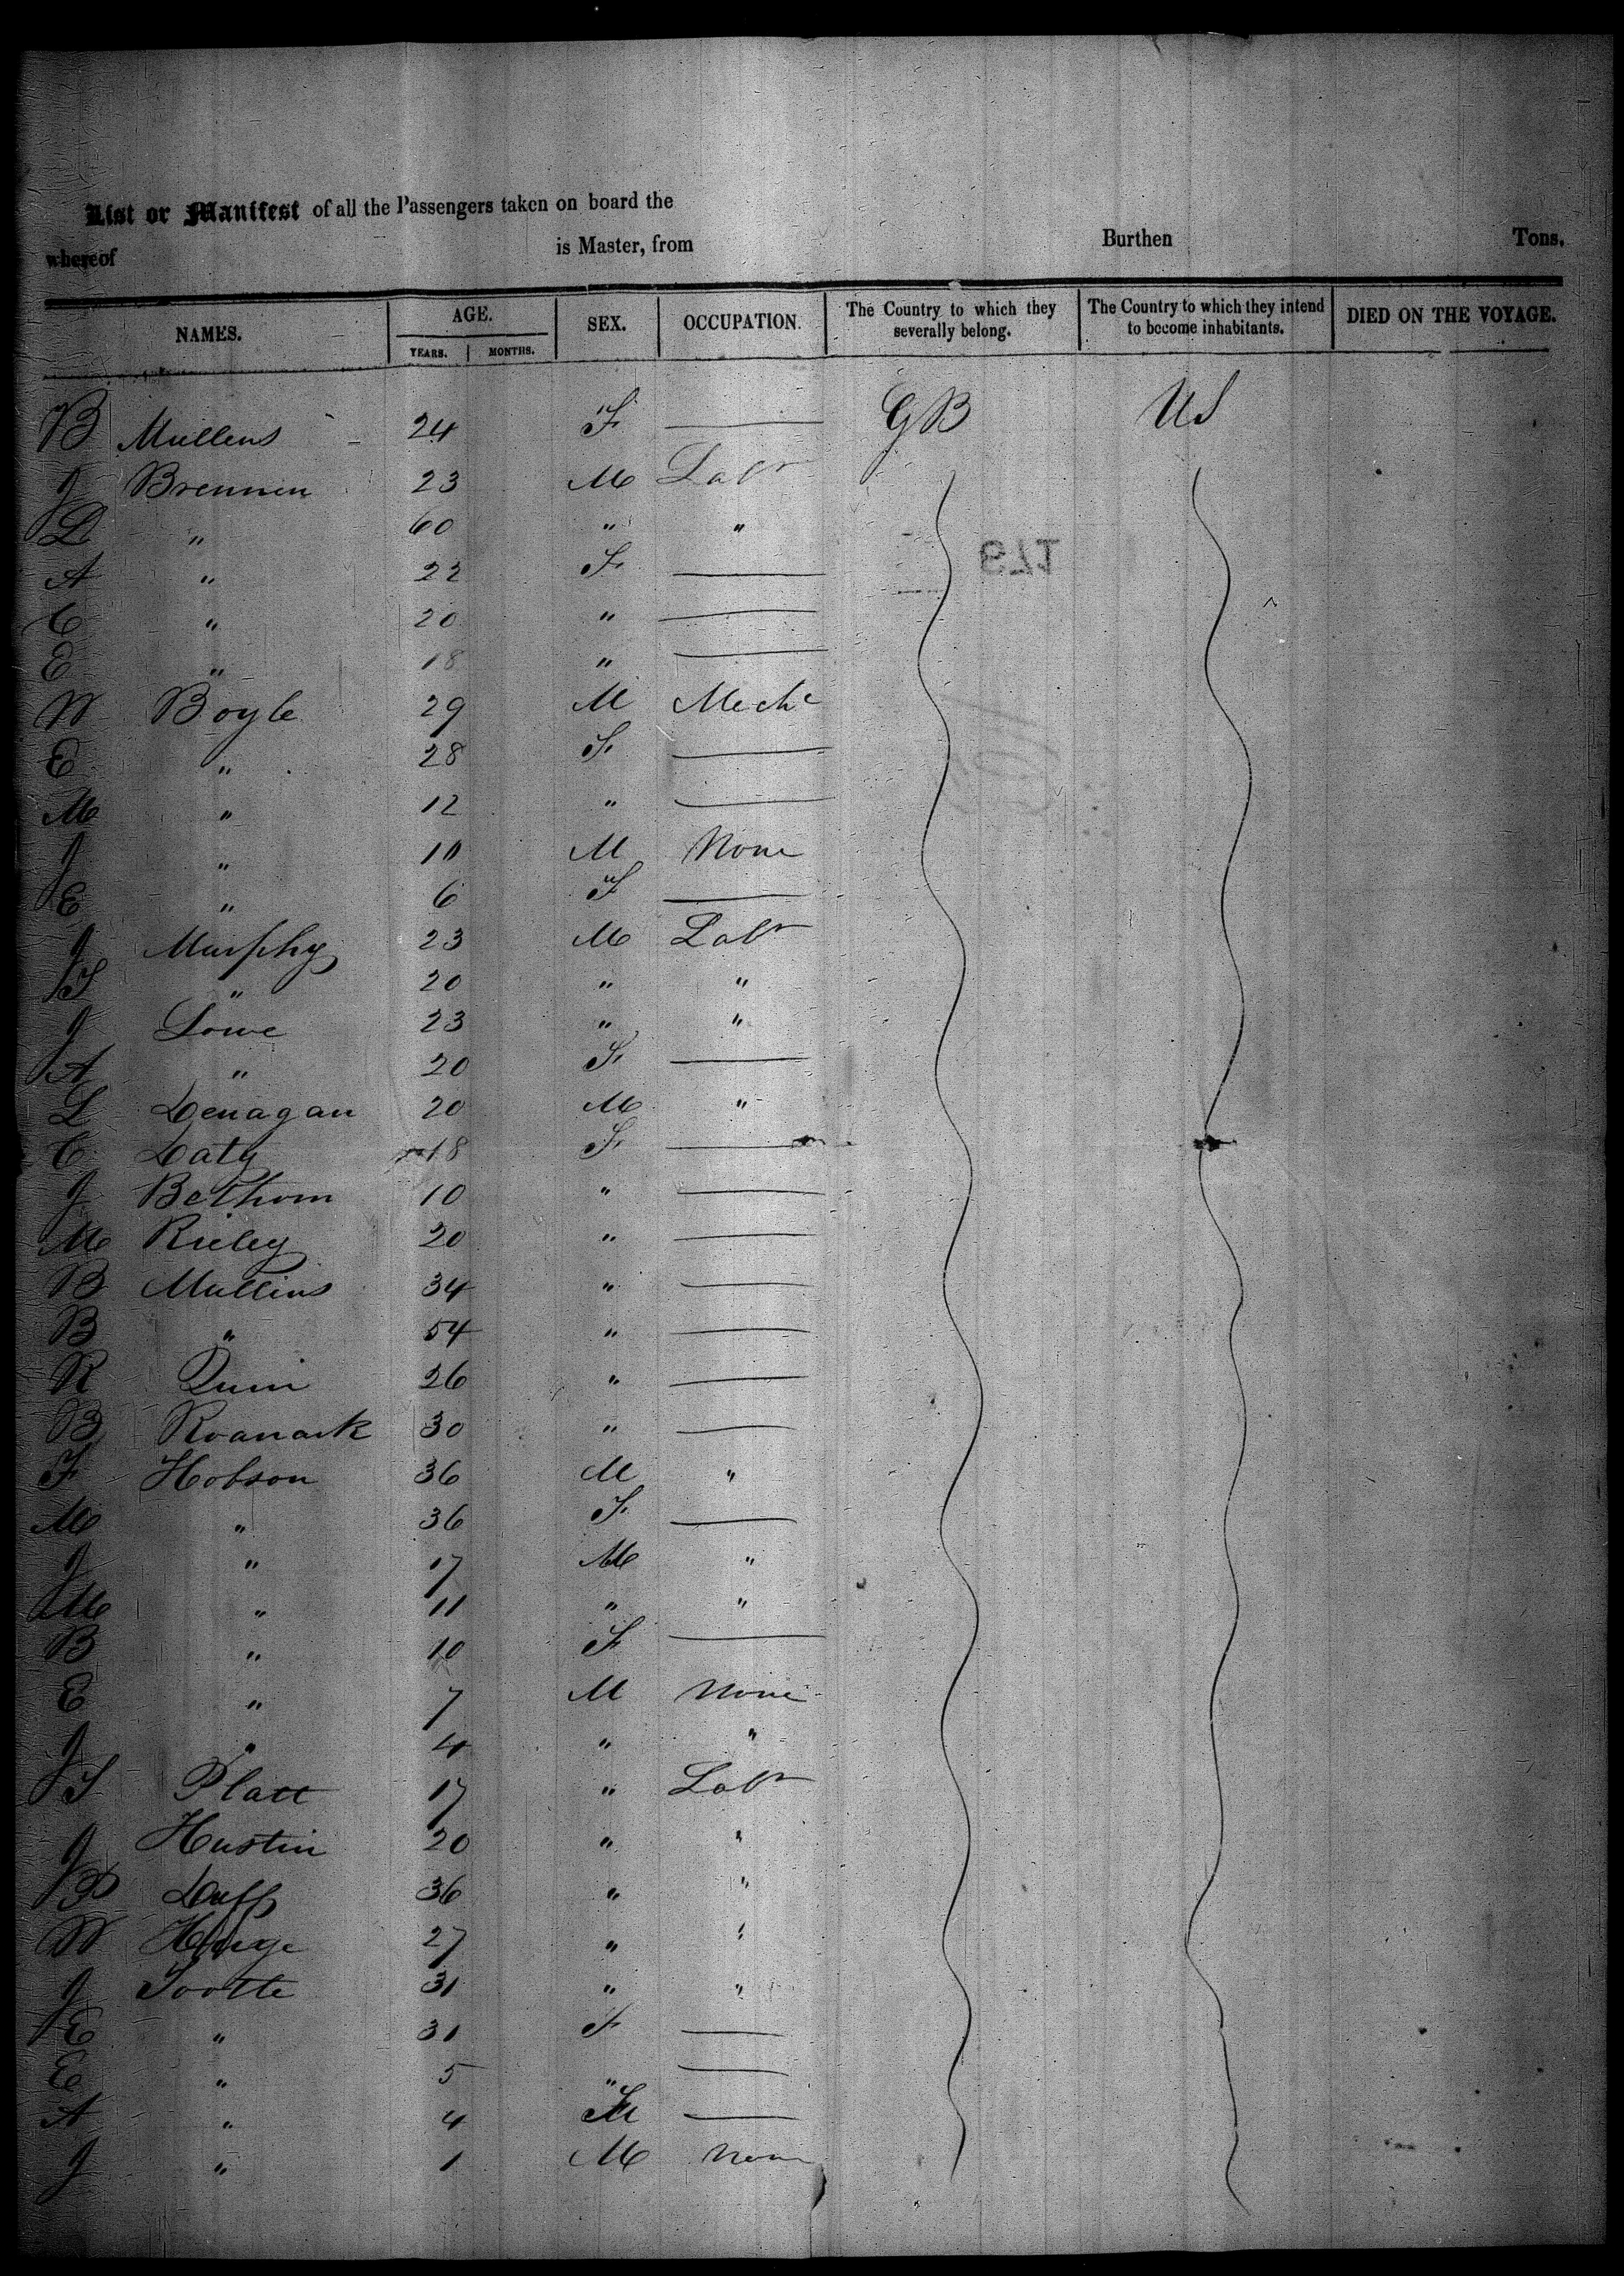 List or Manifest of all the Passengers taken on board the
whereof is Master, from Burthen Tons,
NAMES. AGE. SEX. OCCUPATION. The Country to which they severally belong. The Country to which they intend to become inhabitants. DIED ON THE VOYAGE.
YEARS. MONTHS.
B Mullens 24 F — GB US
J Brennen 23 M Labr
L " 60 " "
A " 22 F —
C " 20 " —
E " 18 " —
W Boyle 29 M Mechc
E " 28 F —
M " 12 " —
J " 10 M None
E " 6 F —
J Murphy 23 M Labr
T " 20 " "
J Lowe 23 " "
A " 20 F —
L Lenagan 20 M "
C Laty 18 F —
J Bethom 10 " —
M Rieley 20 " —
B Mullins 34 " —
B " 54 " —
R Quin 26 " —
B Roanark 30 " —
F Hobson 36 M "
M " 36 F —
J " 17 M "
M " 11 " "
B " 10 F —
E " 7 M None
J " 4 " "
S Platt 17 " Labr
J Hustin 20 " "
P Duff 36 " "
W 27 " "
J Tootte 31 " "
E " 31 F —
E " 5 " —
A " 4 —
J " 1 M None
179